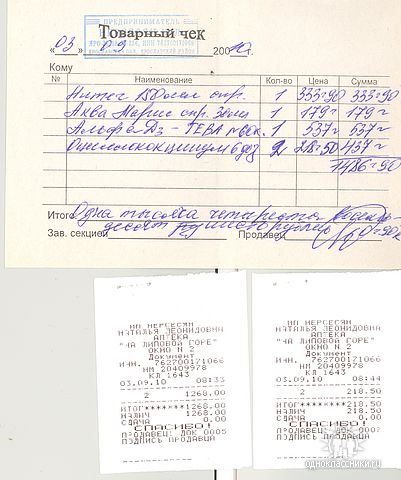 ПРЕДПРИНИМАТЕЛЬ
Товарный чек
«03» 09 2010 г.
Кому
№ Наименование Кол-во Цена Сумма
150мл спр. 1 333=90 333=90
Аква Марис спр. 30мл 1 179= 179=
Альфа Д3 - ТЕВА 1 537= 537=
Оциллококцинум 6 доз 2 218=50 437=
1486=90
Итого Одна тысяча четыреста
десят шесть рублей 90к
Зав. секцией Продавец
ИП НЕРСЕСЯН
НАТАЛЬЯ ЛЕОНИДОВНА
АПТЕКА
"НА ЛИПОВОЙ ГОРЕ"
ОКНО N 2
Документ
ИНН. 762700171066
НМ 20409978
КЛ 1643
03.09.10 08:33
2 1268.00
ИТОГ*******1268.00
НАЛИЧ 1268.00
СДАЧА 0.00
СПАСИБО!
ПРОДАВЕЦ: ДОК 0005
ПОДПИСЬ ПРОДАВЦА
ИП НЕРСЕСЯН
НАТАЛЬЯ ЛЕОНИДОВНА
АПТЕКА
"НА ЛИПОВОЙ ГОРЕ"
ОКНО N 2
Документ
ИНН. 762700171066
НМ 20409978
КЛ 1643
03.09.10 08:44
2 218.50
ИТОГ********218.50
НАЛИЧ 218.50
СДАЧА 0.00
СПАСИБО!
ПРОДАВЕЦ: ДОК 0007
ПОДПИСЬ ПРОДАВЦА
одноклассники.ru